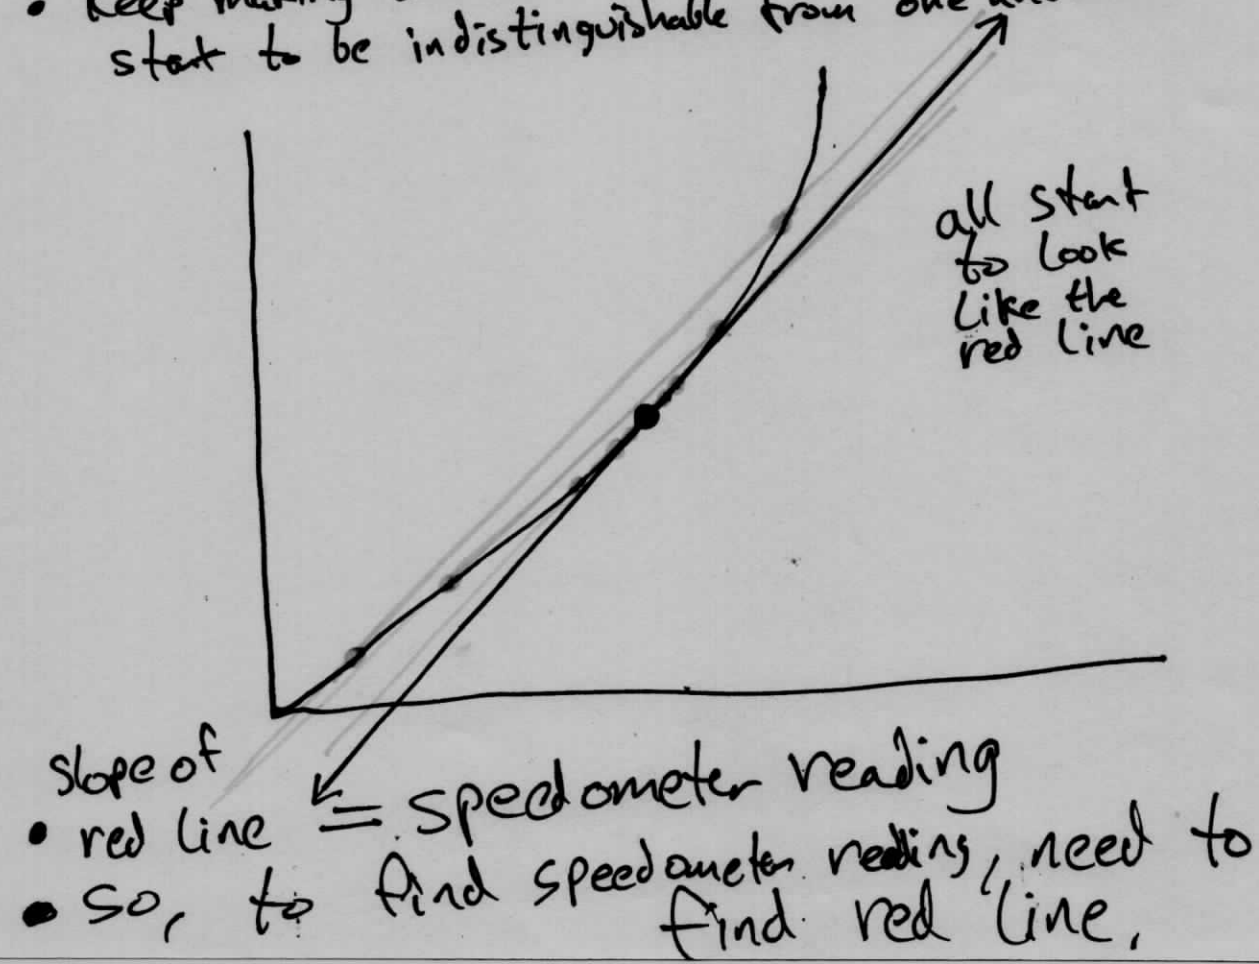 • Keep making
start to be indistinguishable from one
all start
to look
like the
red line
slope of
• red line = speedometer reading
• so, to find speedometer reading, need to
find red line.